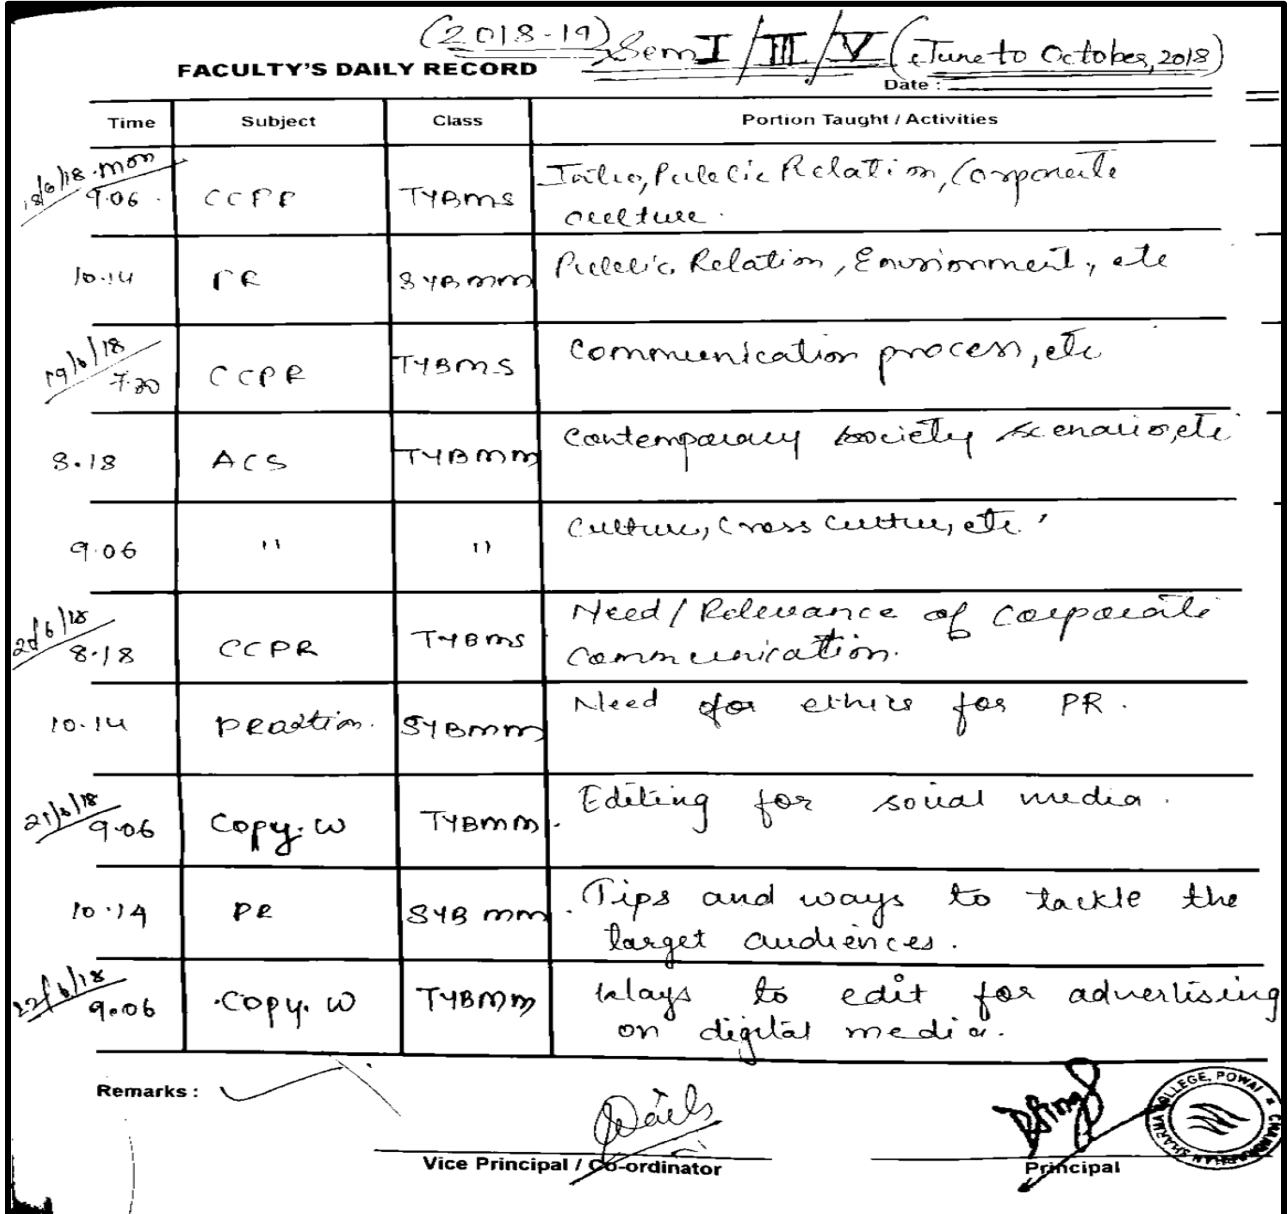 (2018-19) Sem I / III / V (June to October, 2018)
FACULTY'S DAILY RECORD
Date :
Time Subject Class Portion Taught / Activities
18/6/18 mon
9.06 CCPR TYBMS Intro, Public Relation, Corporate
culture.
10.14 PR SYBMM Public Relation, Environment, etc
19/6/18
7.30 CCPR TYBMS Communication process, etc
8.18 ACS TYBMM Contemporary society scenario, etc
9.06 " " Culture, Cross Culture, etc.
20/6/18
8.18 CCPR TYBMS Need / Relevance of Corporate
communication.
10.14 SYBMM Need for ethics for PR.
21/6/18
9.06 Copy. W TYBMM. Editing for social media.
10.14 PR SYBMM. Tips and ways to tackle the
target audiences.
22/6/18
9.06 Copy. W TYBMM Ways to edit for advertising
on digital media.
Remarks :
Vice Principal / Co-ordinator Principal
COLLEGE, POWAI * CHANDRABHAN SHARMA
MUMBAI